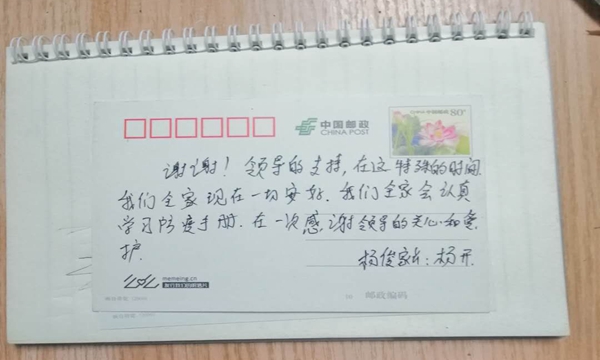 中国邮政
CHINA POST
中国邮政 80分
谢谢！领导的支持，在这特殊的时间
我们全家现在一切安好．我们全家会认真
学习防疫手册．在一次感谢领导的关心和爱
护．
杨俊家长：杨开
memeing.cn
发行我们的明信片
邮政编码